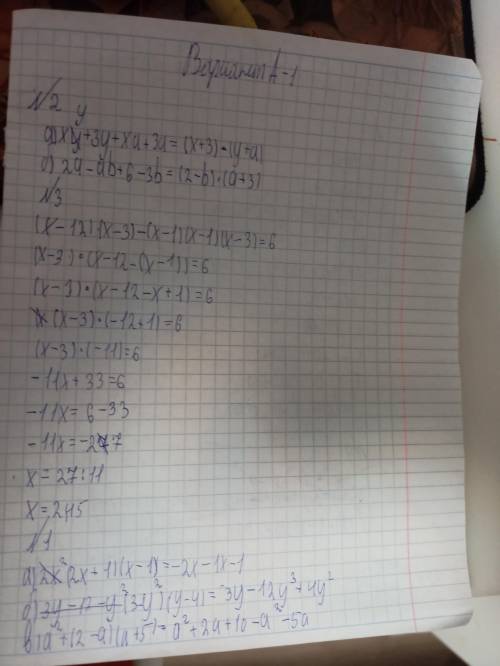 Вариант А-1
№2 у
а) xy+3y+xa+3a=(x+3)·(y+a)
б) 2a-ab+6-3b=(2-b)·(a+3)
№3
(x-12)(x-3)-(x-1)(x-1)(x-3)=6
(x-3)·(x-12-(x-1))=6
(x-3)·(x-12-x+1)=6
(x-3)·(-12+1)=6
(x-3)·(-11)=6
-11x+33=6
-11x=6-33
-11x=-27
x=27:11
x=2,45
№1
а) (2x+1)(x-1)=-2x-1x-1
б) (3y²)(y-4)=3y-12y³+4y²
в) a²+(2-a)(a+5)=a²+2a+10-a²-5a